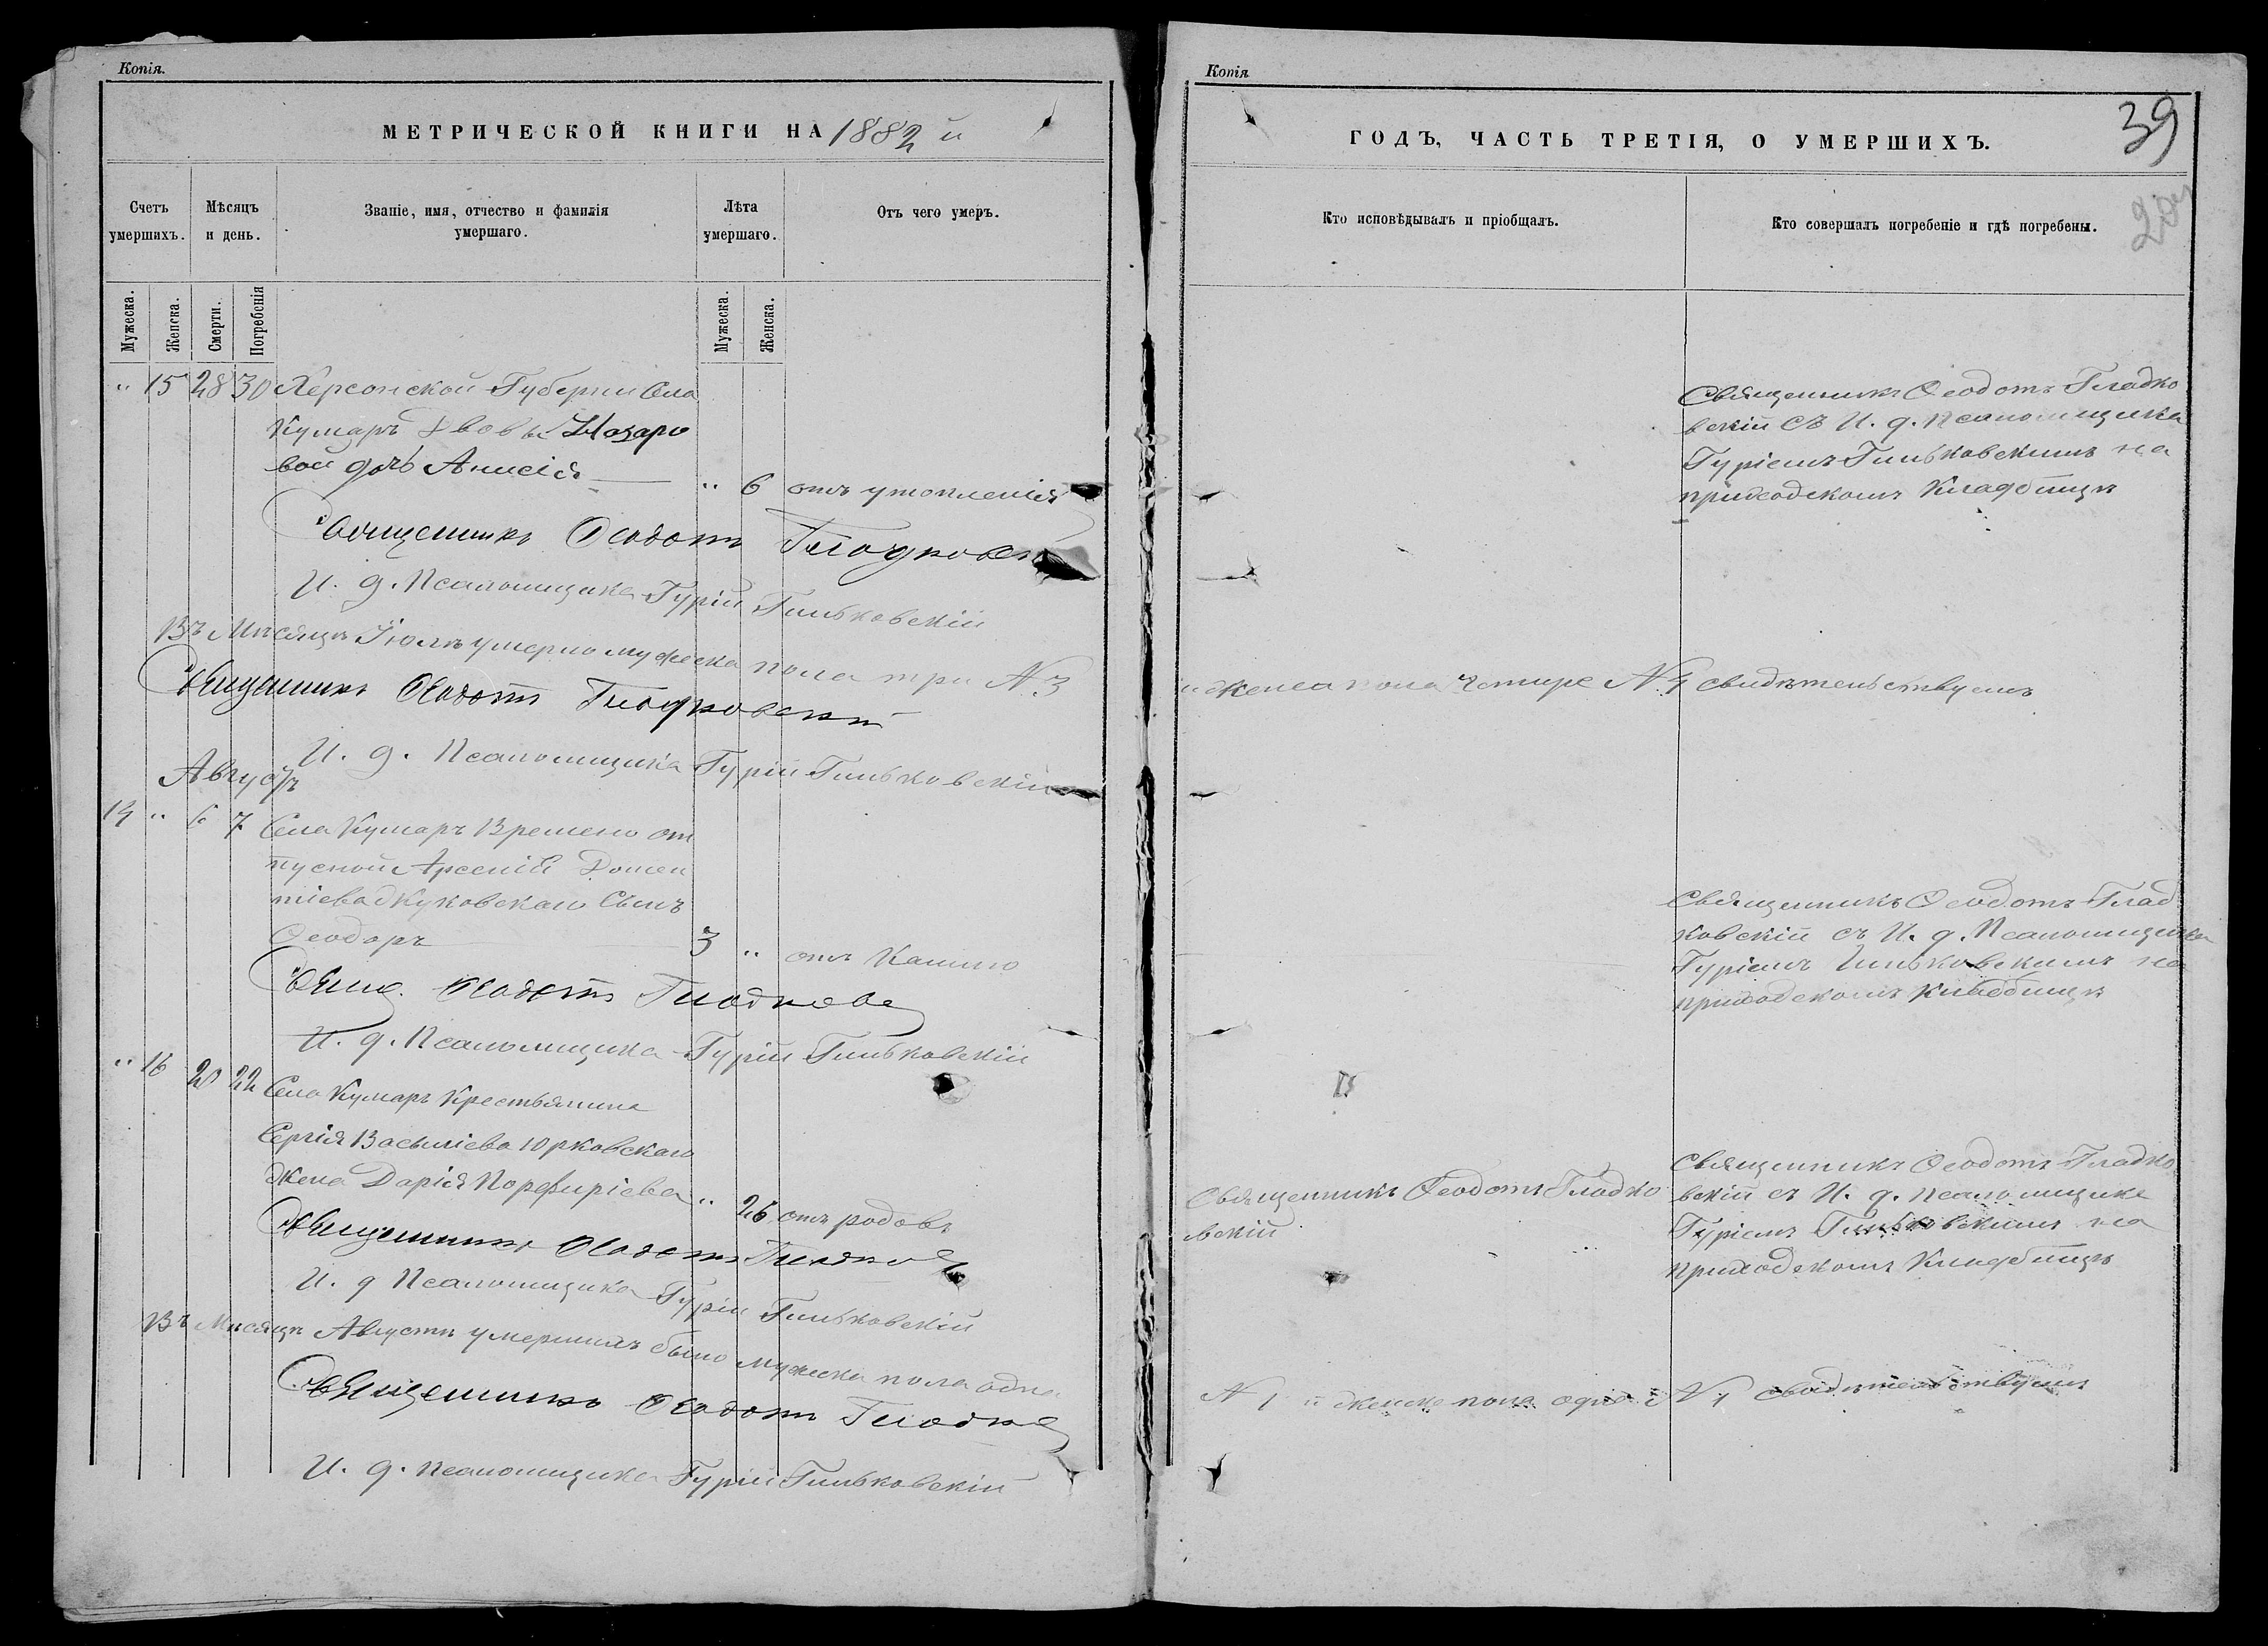 Копія.
МЕТРИЧЕСКОЙ КНИГИ НА 1882 й
Счетъ умершихъ.
Мѣсяцъ и день.
Званіе, имя, отчество и фамилія умершаго.
Лѣта умершаго.
Отъ чего умеръ.
Мужеска.
Женска.
Смерти.
Погребенія
Мужеска.
Женска.
" 15 28 30 Херсонской Губерніи Села
Кумаръ Вдовы Назаро
вой дочь Анисія " 6 отъ утопленія
Священникъ Ѳеодотъ Гладковскій
И. д. Псаломщика Гурій Гиньковскій
Въ Мѣсяцѣ Іюлѣ умерло мужеска пола три № 3
Священникъ Ѳеодотъ Гладковскій
И. д. Псаломщика Гурій Гиньковскій
Августъ
14 " 6 7 Села Кумаръ Времено от
пусной Арсенія
Сынъ
Ѳеодоръ 3 " отъ Кашлю
Свящ. Ѳеодотъ Гладков
И. д. Псаломщика Гурій Гиньковскій
" 16 20 22 Села Кумаръ Крестьянина
Сергія Васыліева Юрковскаго
жена Дарія Порфиріева " 26 отъ родовъ
Священникъ Ѳеодотъ Гладков
И. д Псаломщика Гурій Гиньковскій
Въ Мѣсяцѣ Августѣ умершихъ было мужеска пола одна
Священникъ Ѳеодотъ Гладков
И. д. псаломщика Гурій Гиньковскій
Копія
ГОДЪ, ЧАСТЬ ТРЕТІЯ, О УМЕРШИХЪ.
39
Кто исповѣдывалъ и пріобщалъ.
Кто совершалъ погребеніе и гдѣ погребены.
Священникъ Ѳеодотъ Гладко
вскій съ И. д. Псаломщика
Гуріемъ Гиньковскимъ на
приходскомъ Кладбищѣ
и женска пола четире № 4 свидѣтельствуемъ
Священникъ Ѳеодотъ Глад
ковскій съ И. д. Псаломщика
Гуріемъ Гиньковскимъ на
приходскомъ Кладбищѣ
Священникъ Ѳеодотъ Гладко
вскій
Священникъ Ѳеодотъ Гладко
вскій съ И. д. псаломщика
Гуріемъ Гиньковскимъ на
приходскомъ Кладбищѣ
№ 1 и женска пола одна № 1 свидѣтельствуемъ